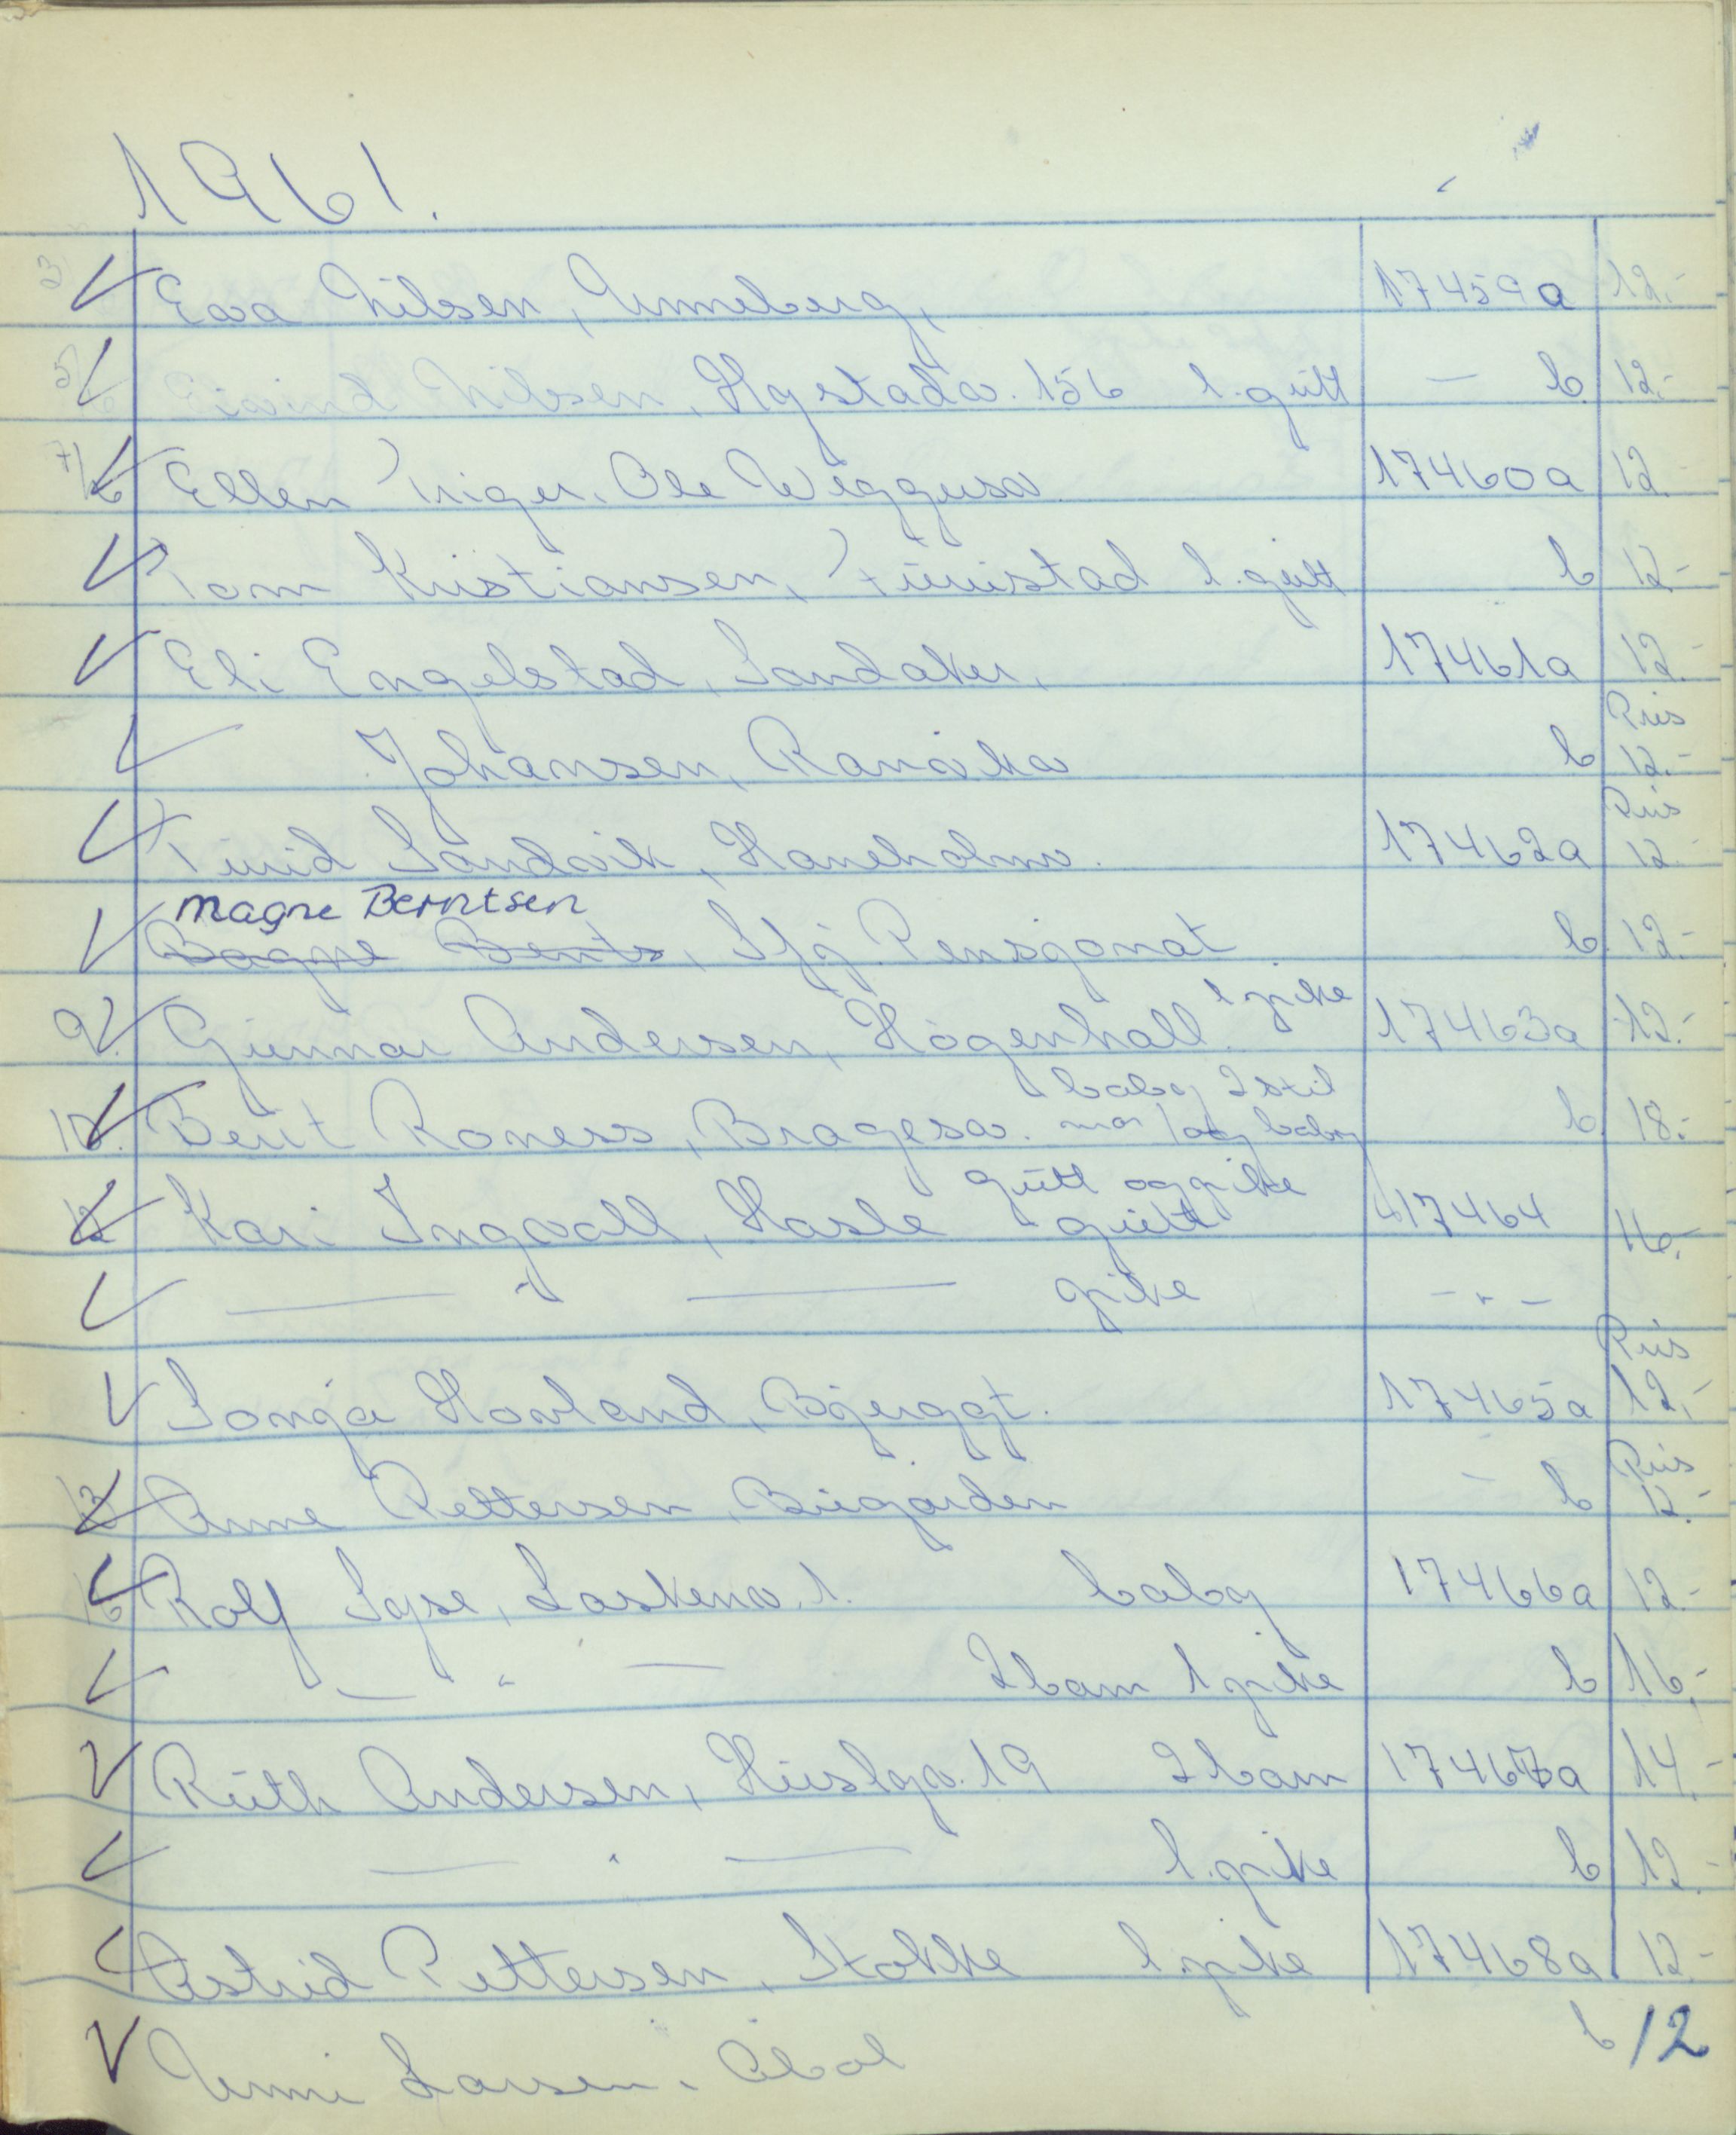 1961.
3 Eva Nilsen, Unneberg, 17459a 12.-
5/6 Eivind Nilsen, Hystadv. 156 1.gutt — b. 12.-
7/6 Ellen Ole Weggersv. 17460a 12.-
Tom Kristiansen, Furustad 1.gutt b 12.-
Eli Engelstad, Sandaker, 17461a 12.-
Johansen, Ranvikv b Pris 12.-
Turid Sandvik, Haneholmv. 17462a Pris 12.-
Magne Berntsen
Bagne Bents, Sfj. Pensjonat b. 12.-
9. Gunnar Andersen, Högenhall. 1 pike 17463a 12.-
baby 2 stil
10. Berit Roness, Bragesv. mor og baby b. 18.-
gutt og pike
12 Kari Ingvall, Hasle gutt 17464 16.-
— " — pike - " -
Sonja Hovland, Bjerggt. 17465a Pris 12.-
13 Anne Pettersen, Bugården - b Pris 12.-
16 Rolf Syse, Laskenv. 1. baby 17466a 12.-
— " — 2 barn 1 pike b 16.-
Ruth Andersen, Huslyv. 19 2 barn 17467a 14.-
— " — 1.pike b 12.-
Astrid Pettersen, Stokke 1.pike 17468a 12.-
Unni Larsen. b 12